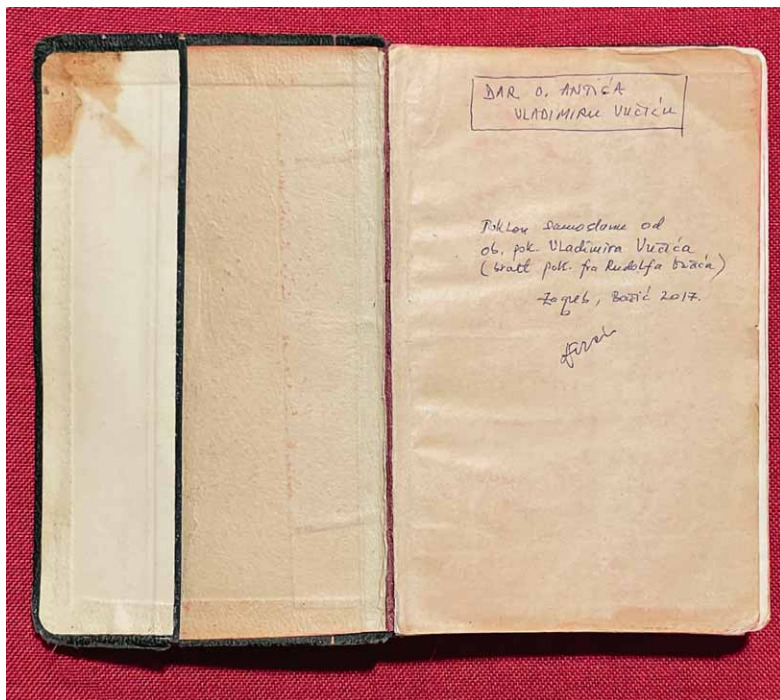 DAR O. ANTIĆA
VLADIMIRU VUČIĆU
Poklon samostanu od
ob. pok. Vladimira Vučića
(brat pok. fra Rudolfa)
Zagreb, Božić 2017.